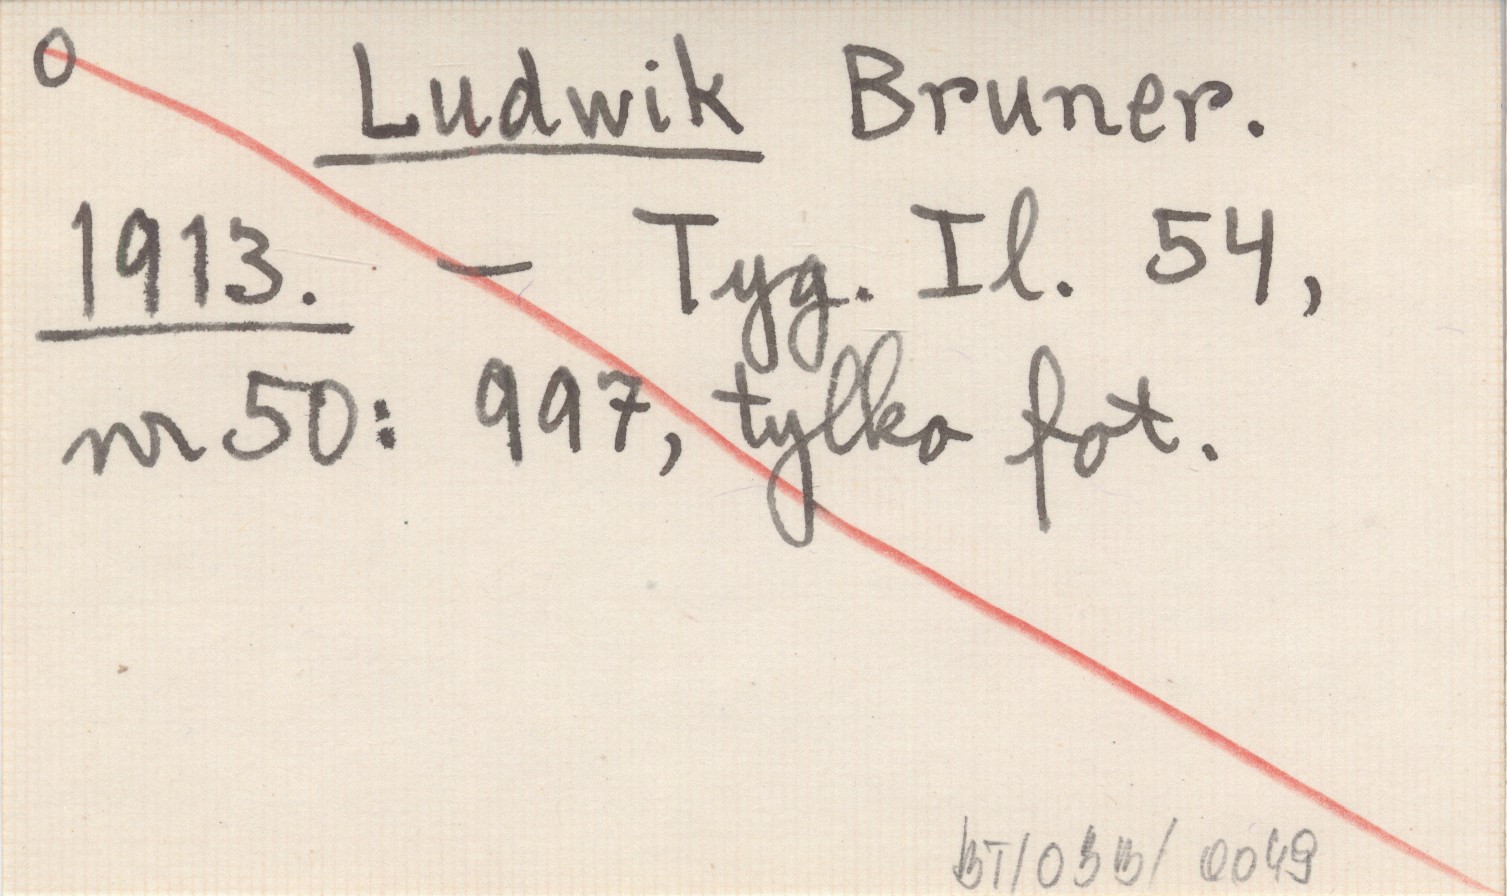 0
Ludwik Bruner.
1913. — Tyg. Il. 54,
nr 50: 997, tylko fot.
BT/03B/ 0049